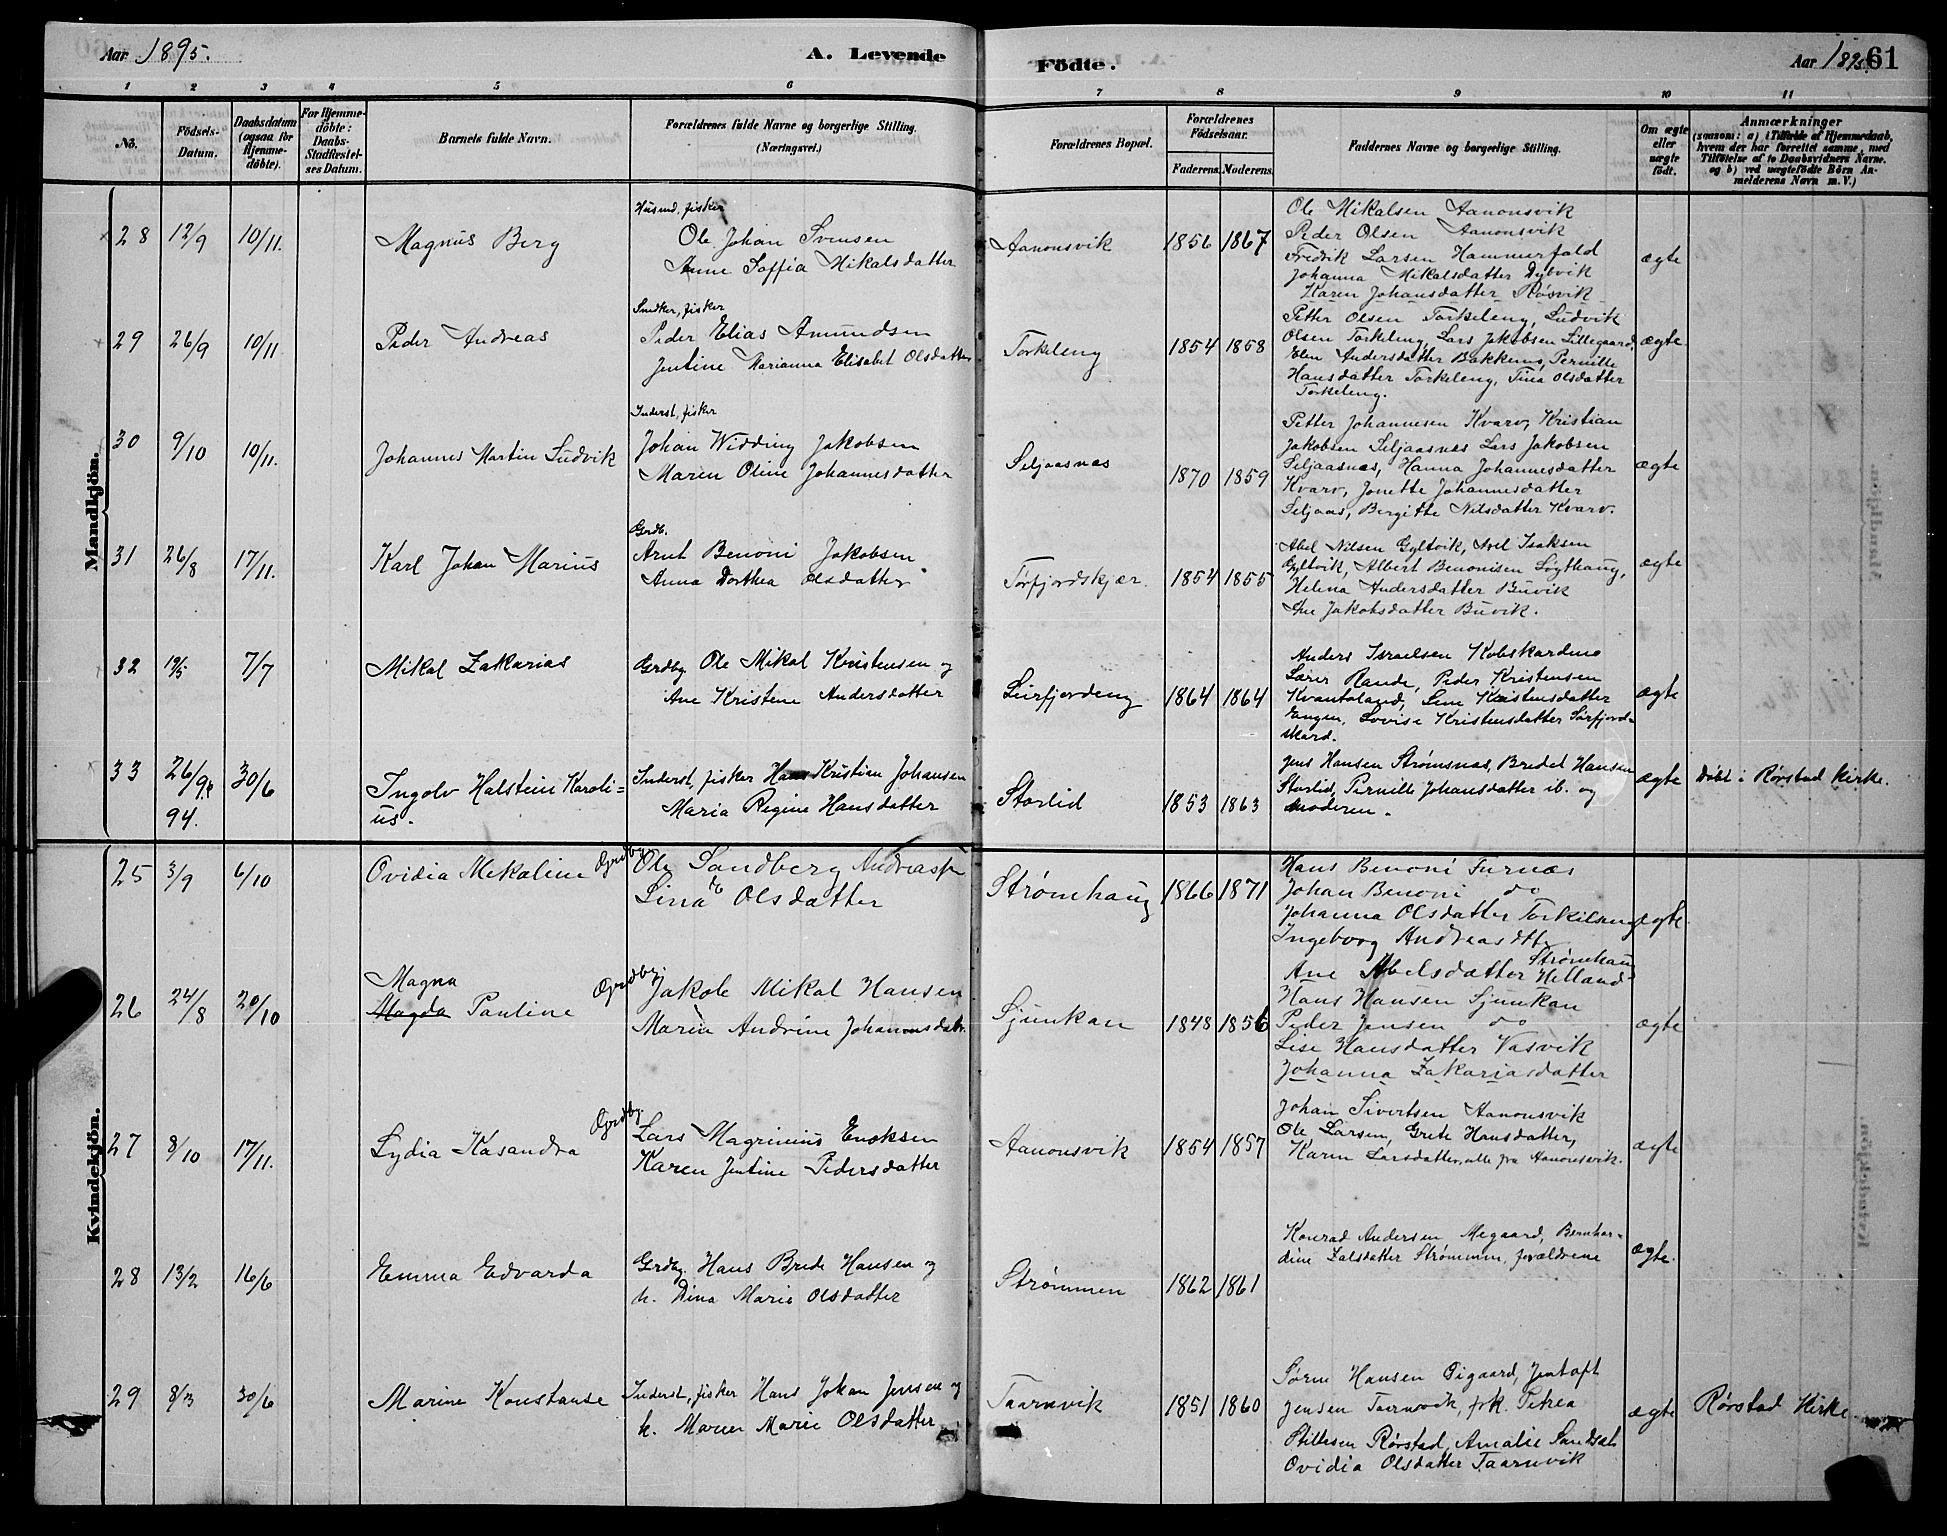 Aar 1895. A. Levende
Födte. Aar 1895. 61
1 2 3 4 5 6 7 8 9 10 11
No.
Födsels-
Datum.
Daabsdatum
(ogsaa for
Hjemme-
döbte).
For Hjemme-
döbte:
Daabs-
Stadfestel-
ses Datum.
Barnets fulde Navn.
Forældrenes fulde Navne og borgerlige Stilling.
(Næringsvei.)
Forældrenes Bopæl.
Forældrenes
Födselsaar.
Faderens. Moderens.
Faddernes Navne og borgerlige Stilling.
Om ægte
eller
uægte
födt.
Anmærkninger
(saasom: a) i Tilfælde af Hjemmedaab,
hvem der har forrettet samme, med
Tilföielse af to Daabsvidners Navne.
og b) ved uægtefödte Börn An-
melderens Navn m. V.)
Mandkjön.
28 12/9 10/11. Magnus Berg
Husmd, fisker
Ole Johan Svensen
Anne Soffia Mikalsdatter
Aanonsvik 1856 1867
Ole Mikalsen Aanonsvik
Peder Olsen Aanonsvik
Fredrik Larsen Hammerfald
Johanna Mikalsdatter Dybvik
Karen Johansdatter Røsvik
ægte
29 26/9 10/11 Peder Andreas
Snedker, fisker
Peder Elias Amundsen
Jentine Marianna Elisabet Olsdatter
Torkeleng 1854 1858
Petter Olsen Torkeleng, Ludvik
Olsen Torkeleng, Lars Jakobsen Lillegaard,
Elen Andersdatter Bakkens, Pernille
Hansdatter Torkeleng, Tina Olsdatter
Torkeleng.
ægte
30 9/10 10/11. Johannes Martin Ludvik
Inderst, fisker
Johan Widding Jakobsen
Maren Oline Johannesdatter
Seljaasnæs 1870 1859
Petter Johannesen Kvarv, Kristian
Jakobsen Seljaasnæs Lars Jakobsen
Seljaasnæs, Hanna Johannesdatter
Kvarv, Jonette Johannesdatter
Seljaas, Bergitte Nilsdatter Kvarv.
ægte
31 26/8 17/11. Karl Johan Marius
Grdb.
Arnt Benoni Jakobsen
Anna Dorthea Olsdatter
Tørfjordskjær 1854 1855
Abel Nilsen Gyltvik, Axel Isaksen
Gyltvik, Albert Benonisen Løgthaug,
Helena Andersdatter Buvik
Ane Jakobsdatter Buvik.
ægte
32 19/5 7/7 Mikal Zakarias
Grdbg Ole Mikal Kristensen og
Ane Kristene Andersdatter
Leirfjordeng 1864 1864
Anders Israelsen Kobskardmo
Lærer Rande, Peder Kristensen
Kvantoland, Line Kristensdatter
Engen, Lovise Kristensdatter Sørfjord-
skard.
ægte
33 26/9 94. 30/6 Ingolv Halstein Karoli-
us.
Inderst, fisker Hans Kristian Johansen
Maria Regine Hansdatter
Storlid 1853 1863
Jens Hansen Strømsnæs, Bredel Hansen
Storlid, Pernille Johansdatter ib. og
Moderen.
ægte Døbt i Rørstad Kirke.
Kvindekjön.
25 3/9 6/10 Ovidia Mekaline
Grdbg Ole Sandberg Andreass
Lina Olsdatter
Strømhaug 1866 1871
Hans Benoni Furnæs
Johan Benoni do
Johanna Olsdatter Torkilseng
Ingeborg Andreasdtr
Strømhaug
Ane Abelsdatter Helland
ægte
26 24/8 20/10 Magna
Magda Pauline
Grdbg Jakob Mikal Hansen
Maria Andrine Johannesdatr.
Sjunkan 1848 1856
Hans Hansen Sjunkan
Peder Jensen do
Lise Hansdatter Vasvik
Johanna Zakariasdatter
ægte
27 8/10 17/11. Lydia Kasandra
Grdbg. Lars Magrinius Enoksen
Karen Jentine Pedersdatter
Aanonsvik 1854 1857
Johan Sivertsen Aanonsvik
Ole Larsen, Grete Hansdatter,
Karen Larsdatter, alle fra Aanonsvik.
ægte
28 13/2 16/6 Emma Edvarda
Grdbg. Hans Brede Hansen og
h. Dina Marie Olsdatter
Strømmen 1862 1861
Konrad Andersen Megaard, Bernhar-
dine Zalsdatter Strømmen, forældrene
ægte.
29 8/3 30/6 Marine Konstanse
Inderst, fisker Hans Johan Jensen og
h. Maren Marie Olsdatter
Taarnvik 1851 1860
Sørin Hansen Øigaard, Jentoft
Jensen Taarnvik, frk. Petrea
Stillesen Rørstad, Amalie Sandsæt
Ovidia Olsdatter Taarnvik
ægte Rørstad Kirke